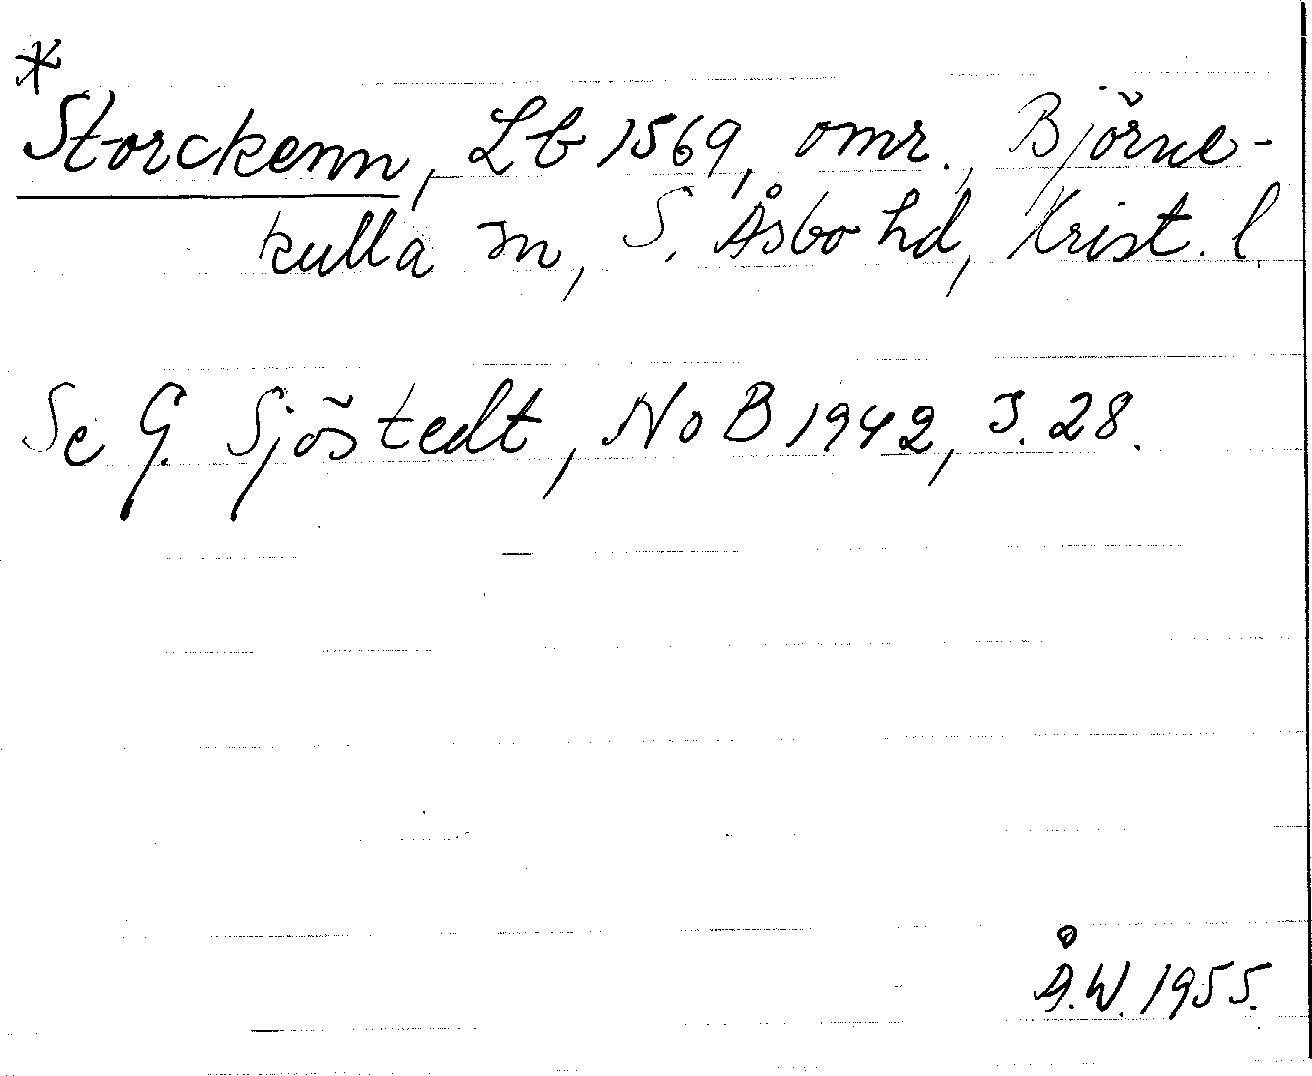 *
Storckenn, Lb 1569, omr., Björne-
kulla sn, S. Åsbo hd, Krist. l.
Se G. Sjöstedt, NoB 1942, s. 28.
Å.W. 1955.